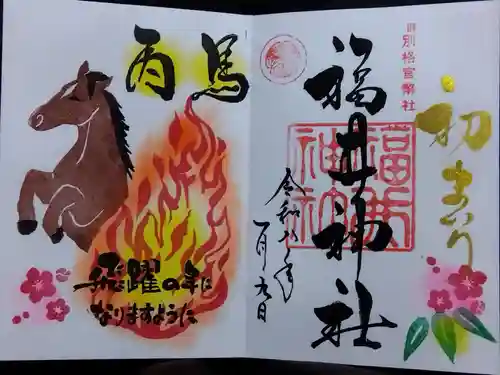 別格官幣社
初まいり
福井神社
福井神社
令和八年
一月九日
丙
馬
飛躍の年に
なりますように